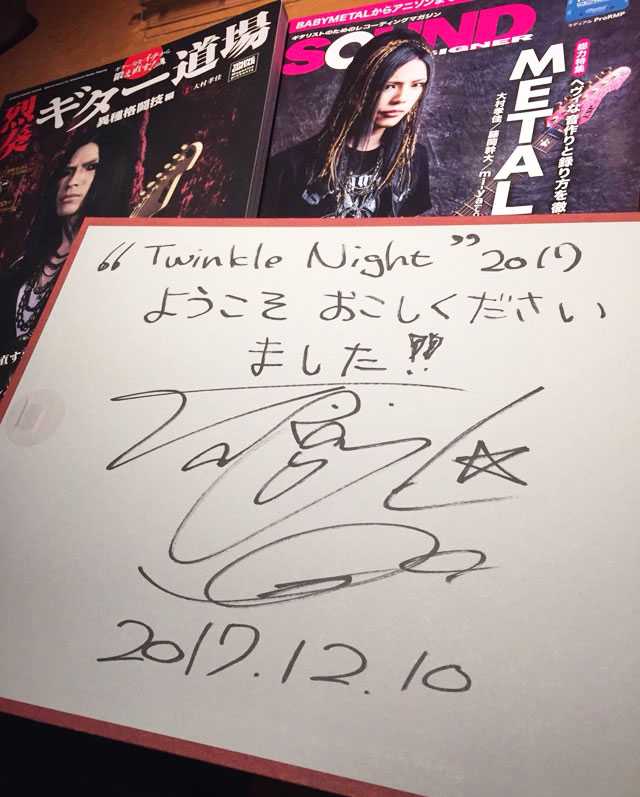 烈奏
ギター道場
異種格闘技編
大村孝佳
BABYMETALからアニソンま
ギタリストのためのレコーディングマガジン
SOUND
DESIGNER
ラディアル ProRMP
METAL
総力特集
ヘヴィな音作りと録り方を徹
大村孝佳/藤岡幹大/
直す
“Twinkle Night” 2017
ようこそ おこしください
ました!!
2017.12.10